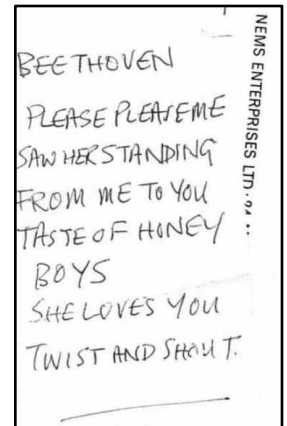 BEETHOVEN
PLEASE PLEASE ME
SAW HER STANDING
FROM ME TO YOU
TASTE OF HONEY
BOYS
SHE LOVES YOU
TWIST AND SHOUT.
NEMS ENTERPRISES LTD